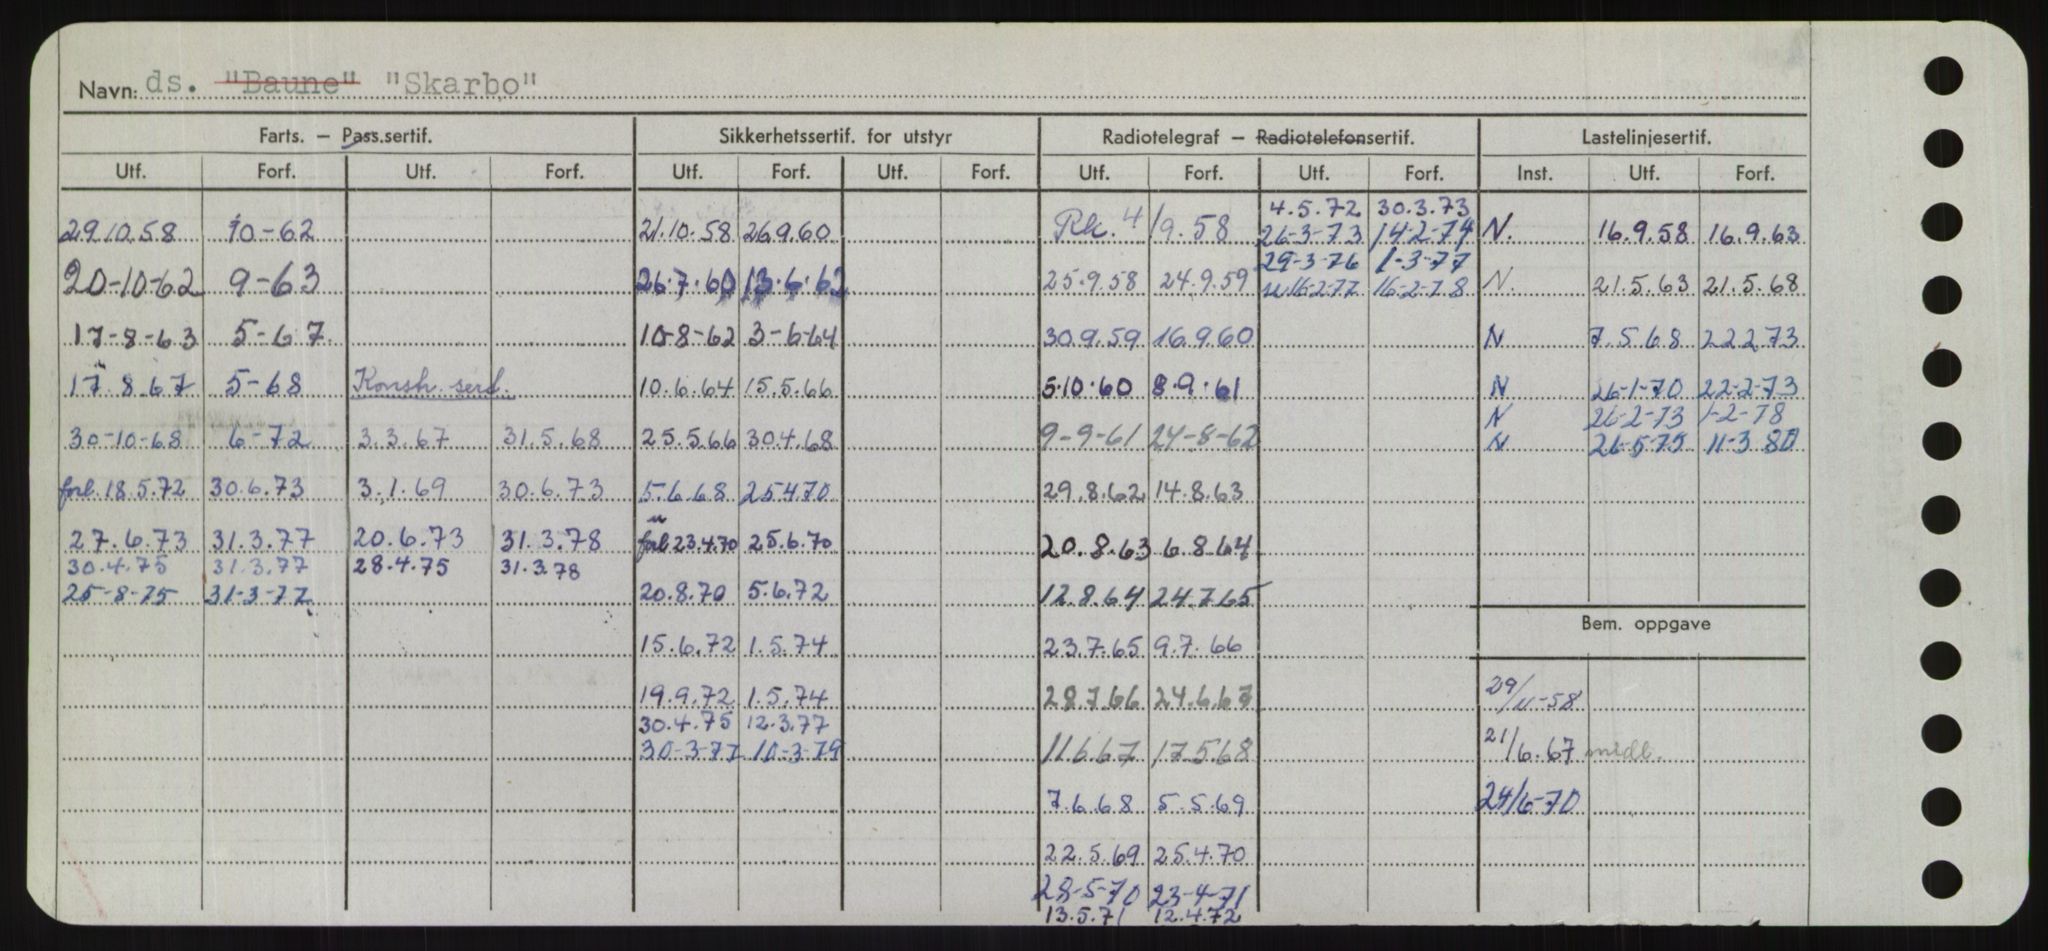 Navn: ds. "Baune" "Skarbo"
Farts. — Pass.sertif. Sikkerhetssertif. for utstyr Radiotelegraf — Radiotelefonsertif. Lastelinjesertif.
Utf. Forf. Utf. Forf. Utf. Forf. Utf. Forf. Utf. Forf. Utf. Forf. Inst. Utf. Forf.
4.5.72 30.3.73
29.10.58 10-62 21.10.58 26.9.60 Rk. 4/9.58 26-3-73 14-2-74 N. 16.9.58 16.9.63
29-3-76 1-3-77
20-10-62 9-63 26.7.60 13.6.62 25.9.58 24.9.59 16-2-77 16-2-78 N. 21.5.63 21.5.68
17-8-63 5-67. 10-8-62 3-6-64 30.9.59 16.9.60 N 7.5.68 22.2.73
17.8.67 5-68 Konstr. sert. 10.6.64 15.5.66 5.10.60 8.9.61 N 26-1-70 22-2-73
N 26-2-73 1-2-78
30-10-68 6-72 3.3.67 31.5.68 25.5.66 30.4.68 9-9-61 24-8-62 N 26-5-75 11-3 80
forl. 18.5.72 30.6.73 3.1.69 30.6.73 5.6.68 25.4.70 29.8.62 14.8.63
27.6.73 31.3.77 20.6.73 31.3.78 forl 23.4.70 25.6.70 20.8.63 6.8.64
30.4.75 31.3.77 28.4.75 31.3.78
25-8-75 31-3-77 20.8.70 5.6.72 12.8.64 24.7.65
Bem. oppgave
15.6.72 1.5.74 23.7.65 9.7.66
19.9.72 1.5.74 28.7.66 24.6.67 29/11-58
30.4.75 12.3.77
30-3-77 10-3-79 11.6.67 17.5.68 21/6.67 midl.
7.6.68 5.5.69 24/6-70
22.5.69 25.4.70
28-5-70 23-4-71
13.5.71 12.4.72